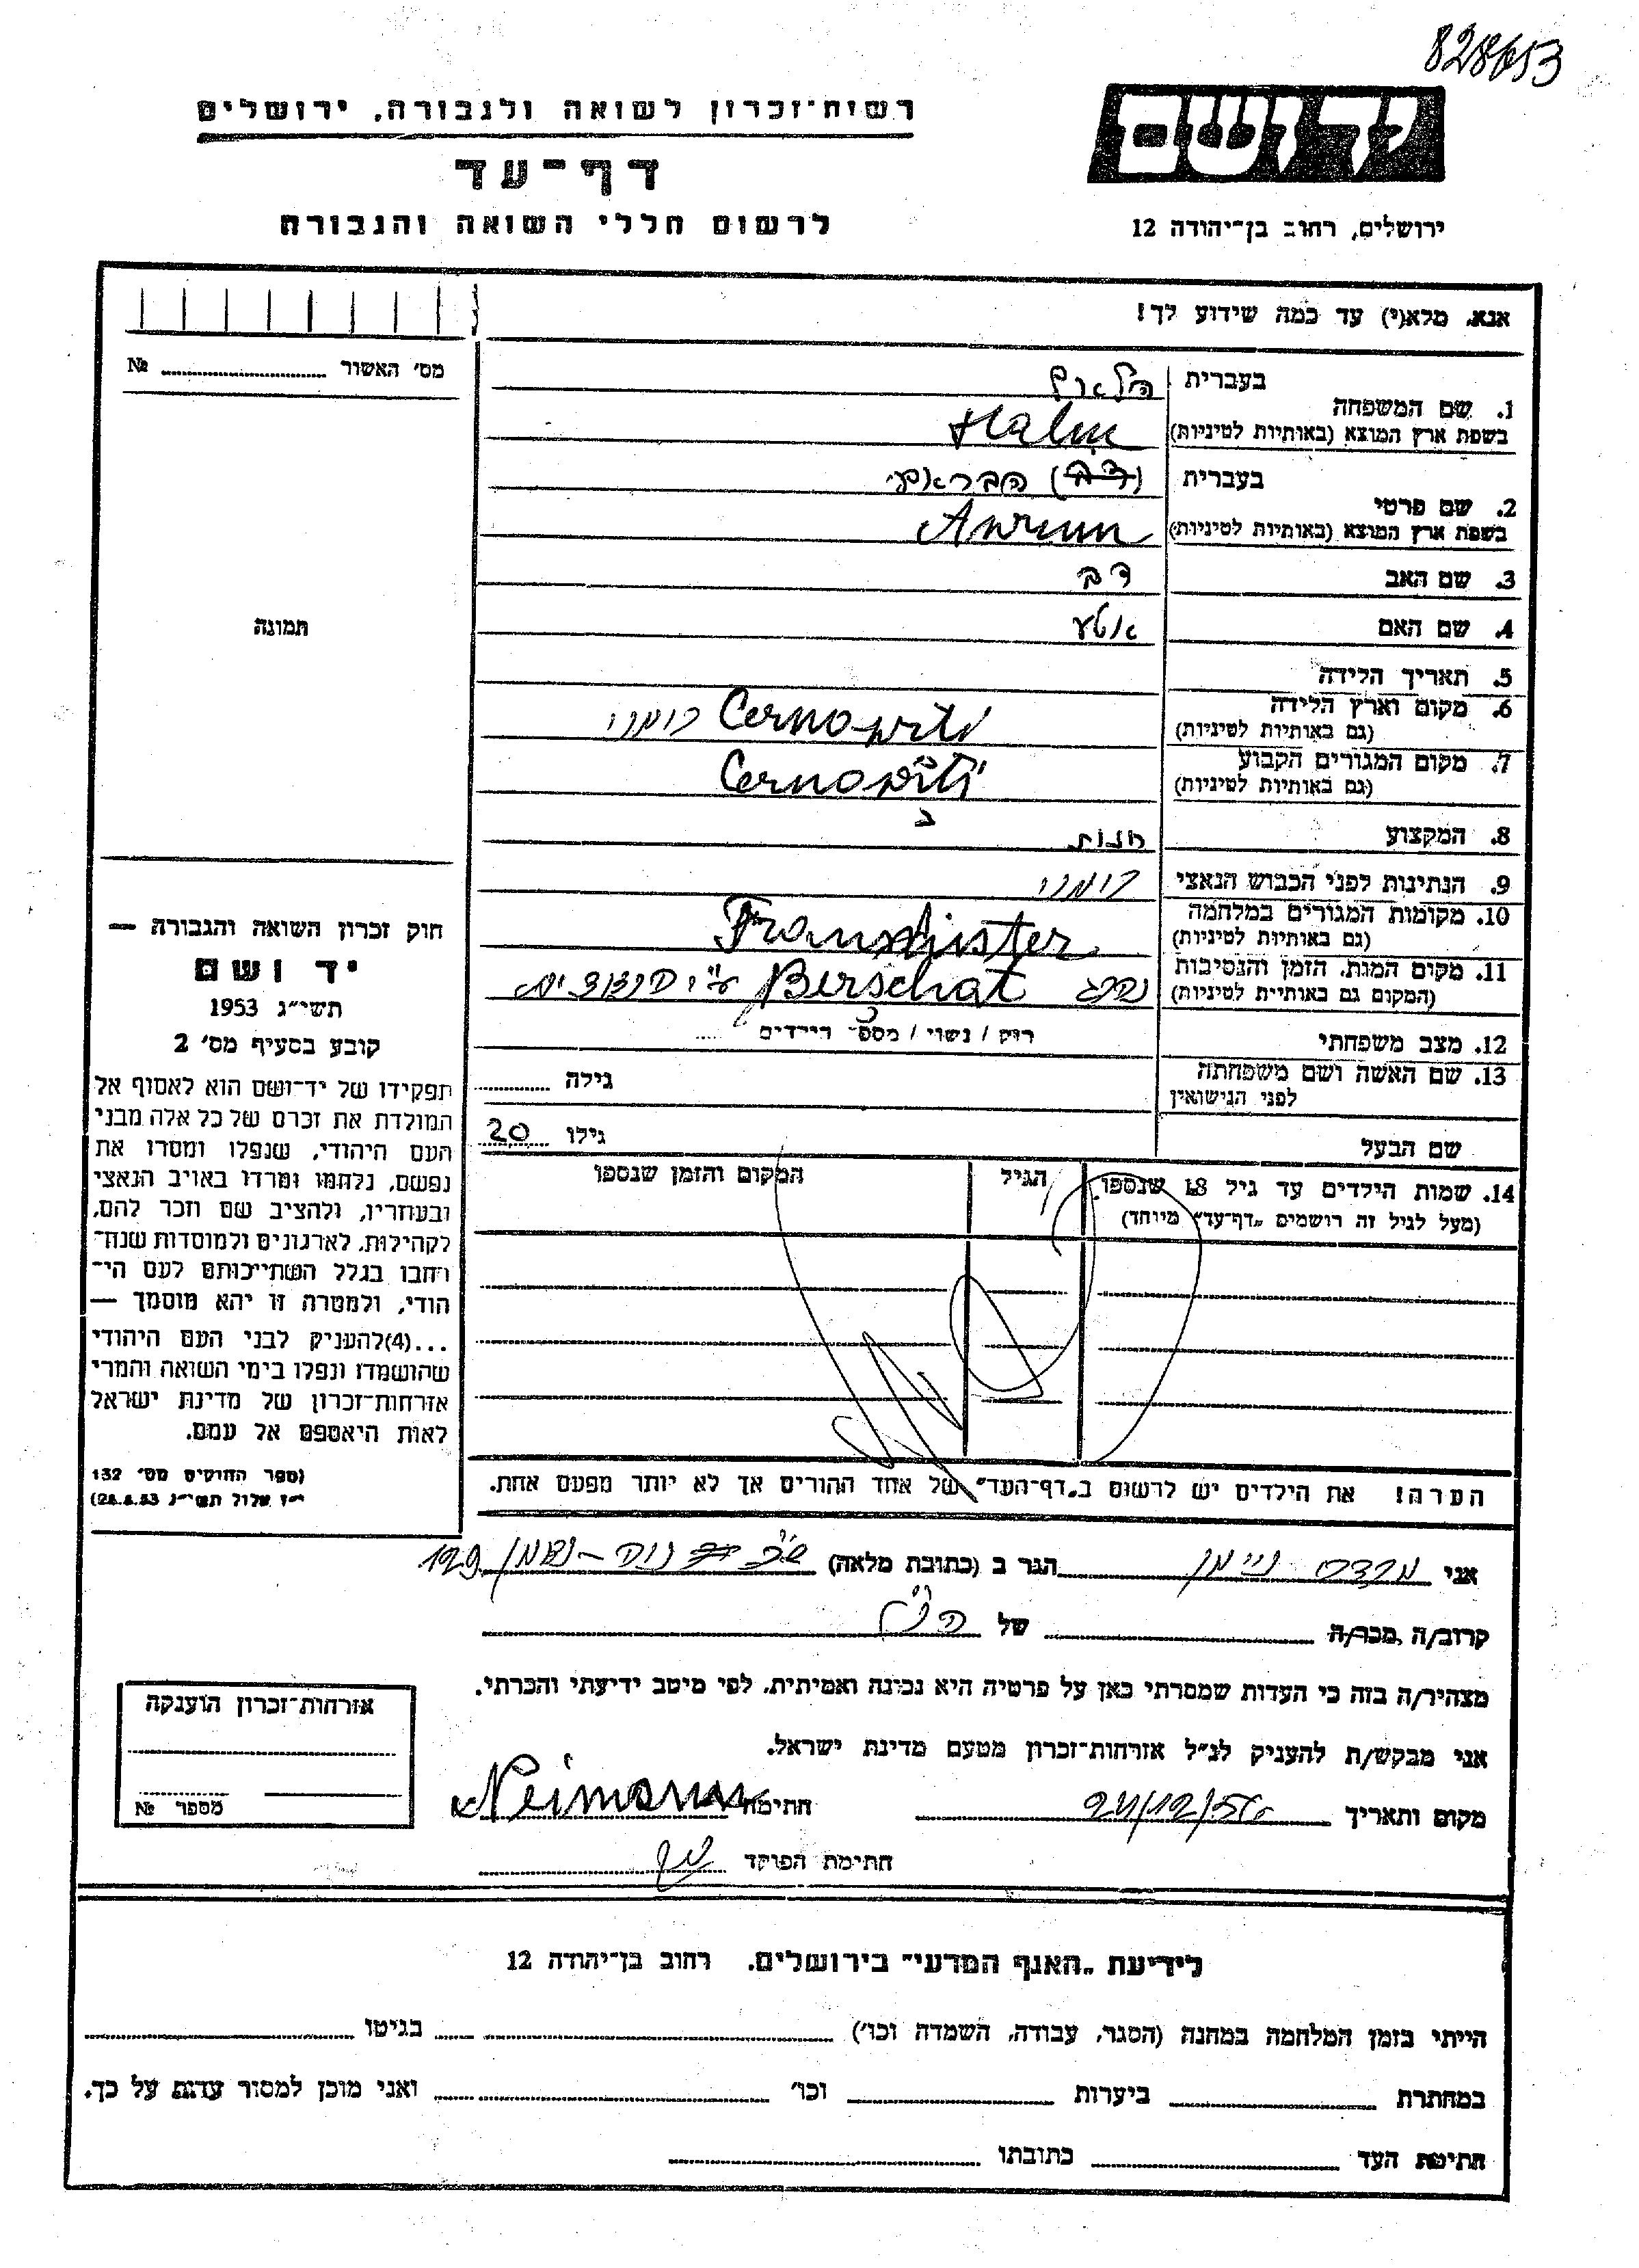 828653
רשות־זכרון לשואה ולגבורה, ירושלים
דף־עד
לרשום חללי השואה והגבורה
יד ושם
ירושלים, רחוב בן־יהודה 12
אנא, מלא(י) עד כמה שידוע לך!
מס' האשור № 
1. שם המשפחה בעברית
בשפת ארץ המוצא (באותיות לטיניות) Halm
2. שם פרטי בעברית (דב)
בשפת ארץ המוצא (באותיות לטיניות)
3. שם האב דב
4. שם האם אטע
תמונה
5. תאריך הלידה
6. מקום וארץ הלידה Cernowitz רומניי
(גם באותיות לטיניות)
7. מקום המגורים הקבוע Cernowitz
(גם באותיות לטיניות)
8. המקצוע
9. הנתינות לפני הכבוש הנאצי רומני
10. מקומות המגורים במלחמה Transnister
(גם באותיות לטיניות)
11. מקום המות, הזמן והנסיבות נהרג Berschat ע"י
(המקום גם באותיות לטיניות)
12. מצב משפחתי רוק / נשוי / מספר הילדים
13. שם האשה ושם משפחתה גילה
לפני הנישואין
שם הבעל גילו 20
14. שמות הילדים עד גיל 18 שנספו הגיל המקום והזמן שנספו
(מעל לגיל זה רושמים „דף־עד" מיוחד)
הערה! את הילדים יש לרשום ב„דף־העד" של אחד ההורים אך לא יותר מפעם אחת.
חוק זכרון השואה והגבורה —
יד ושם
תשי"ג 1953
קובע בסעיף מס' 2
תפקידו של יד־ושם הוא לאסוף אל
המולדת את זכרם של כל אלה מבני
העם היהודי, שנפלו ומסרו את
נפשם, נלחמו ומרדו באויב הנאצי
ובעוזריו, ולהציב שם וזכר להם,
לקהילות, לארגונים ולמוסדות שנח־
רחבו בגלל השתייכותם לעם הי־
הודי, ולמטרה זו יהא מוסמך —
...(4)להעניק לבני העם היהודי
שהושמדו ונפלו בימי השואה והמרי
אזרחות־זכרון של מדינת ישראל
לאות היאספם אל עמם.
(ספר החוקים מס' 132
י"ז אלול תשי"ג 28.8.53)
אני מרדכי ניימן הגר ב (כתובת מלאה) 129
קרוב/ה מכר/ה של הנ"ל
מצהיר/ה בזה כי העדות שמסרתי כאן על פרטיה היא נכונה ואמיתית, לפי מיטב ידיעתי והכרתי.
אני מבקש/ת להעניק לנ"ל אזרחות־זכרון מטעם מדינת ישראל.
מקום ותאריך חתימה Neimann
חתימת הפוקד
אזרחות־זכרון הוענקה
מספר №
לידיעת „האגף המדעי" בירושלים, רחוב בן־יהודה 12
הייתי בזמן המלחמה במחנה (הסגר, עבודה, השמדה וכו') בגיטו
במחתרת ביערות וכו' ואני מוכן למסור עדות על כך.
חתימת העד כתובתו